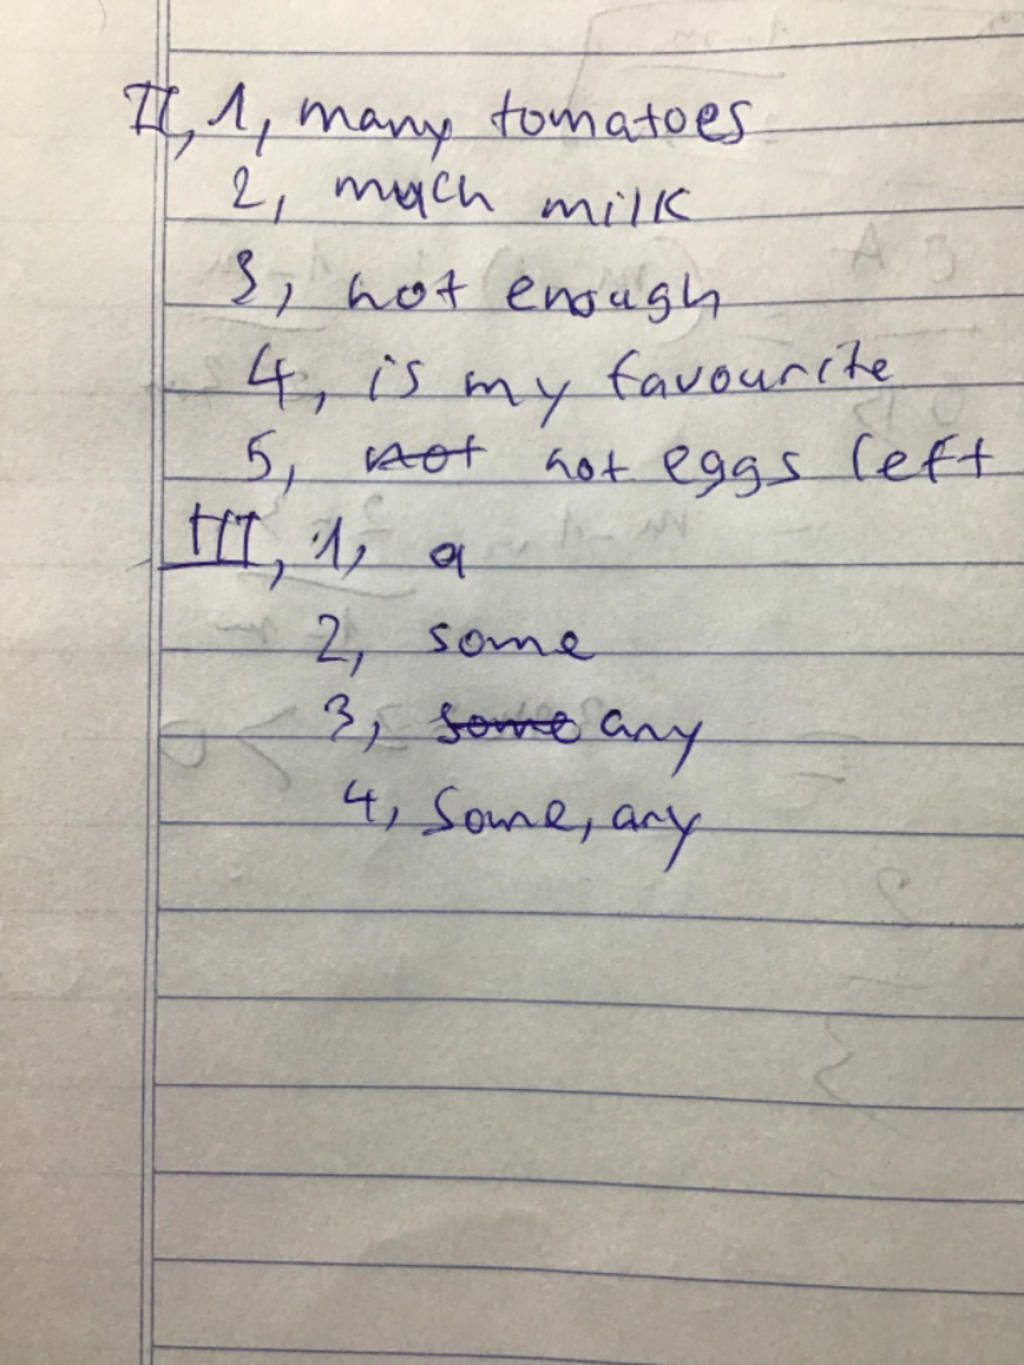 II, 1, many tomatoes
2, much milk
3, not enough
4, is my favourite
5, not not eggs left
III, 1, a
2, some
3, some any
4, Some, any